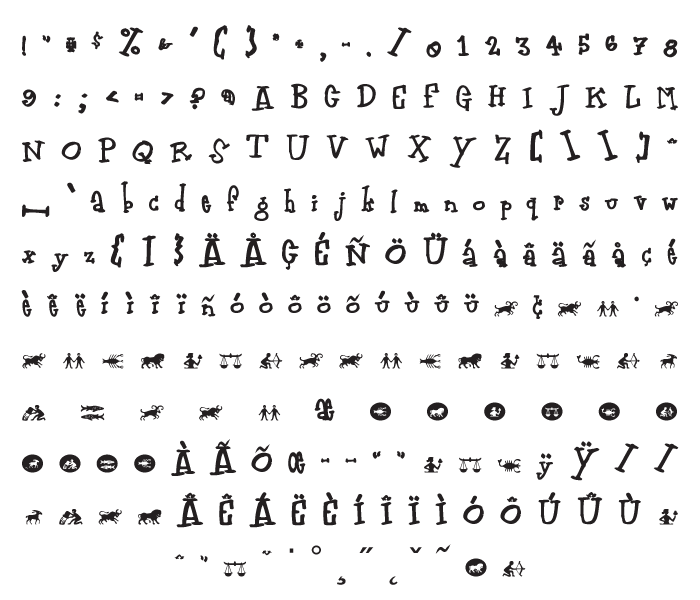 ! " # $ % & ' ( ) * + , - . / 0 1 2 3 4 5 6 7 8
9 : ; < = > ? @ A B C D E F G H I J K L M
N O P Q R S T U V W X Y Z [ \ ] ^
_ ` a b c d e f g h i j k l m n o p q r s t u v w
x y z { | } Ä Å Ç É Ñ Ö Ü á à â ä ã å ç é
è ê ë í ì î ï ñ ó ò ô ö õ ú ù û ü ¢
Æ
À Ã Õ œ – — “ ” ÿ Ÿ
Â Ê Á Ë È Í Î Ï Ì Ó Ô Ú Û Ù